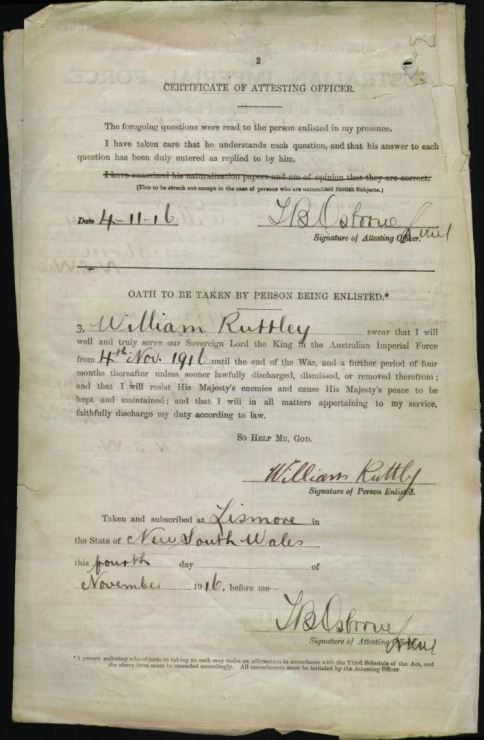 2
CERTIFICATE OF ATTESTING OFFICER.
The foregoing questions were read to the person enlisted in my presence.
I have taken care that he understands each question, and that his answer to each
question has been duly entered as replied to by him.
I have examined his naturalization papers and am of opinion that they are correct.
(This to be struck out except in the case of persons who are naturalized British Subjects.)
Date 4-11-16 T B Osborne
Signature of Attesting Officer.
OATH TO BE TAKEN BY PERSON BEING ENLISTED.*
I, William Ruttley swear that I will
well and truly serve our Sovereign Lord the King in the Australian Imperial Force
from 4th Nov. 1916 until the end of the War, and a further period of four
months thereafter unless sooner lawfully discharged, dismissed, or removed therefrom;
and that I will resist His Majesty's enemies and cause His Majesty's peace to be
kept and maintained; and that I will in all matters appertaining to my service,
faithfully discharge my duty according to law.
SO HELP ME, GOD.
William Ruttly
Signature of Person Enlisted.
Taken and subscribed at Lismore in
the State of New South Wales
this fourth day of
November 1916, before me—
T B Osborne
Signature of Attesting Officer.
*A person enlisting who objects to taking an oath may make an affirmation in accordance with the Third Schedule of the Act, and
the above form must be amended accordingly. All amendments must be initialed by the Attesting Officer.